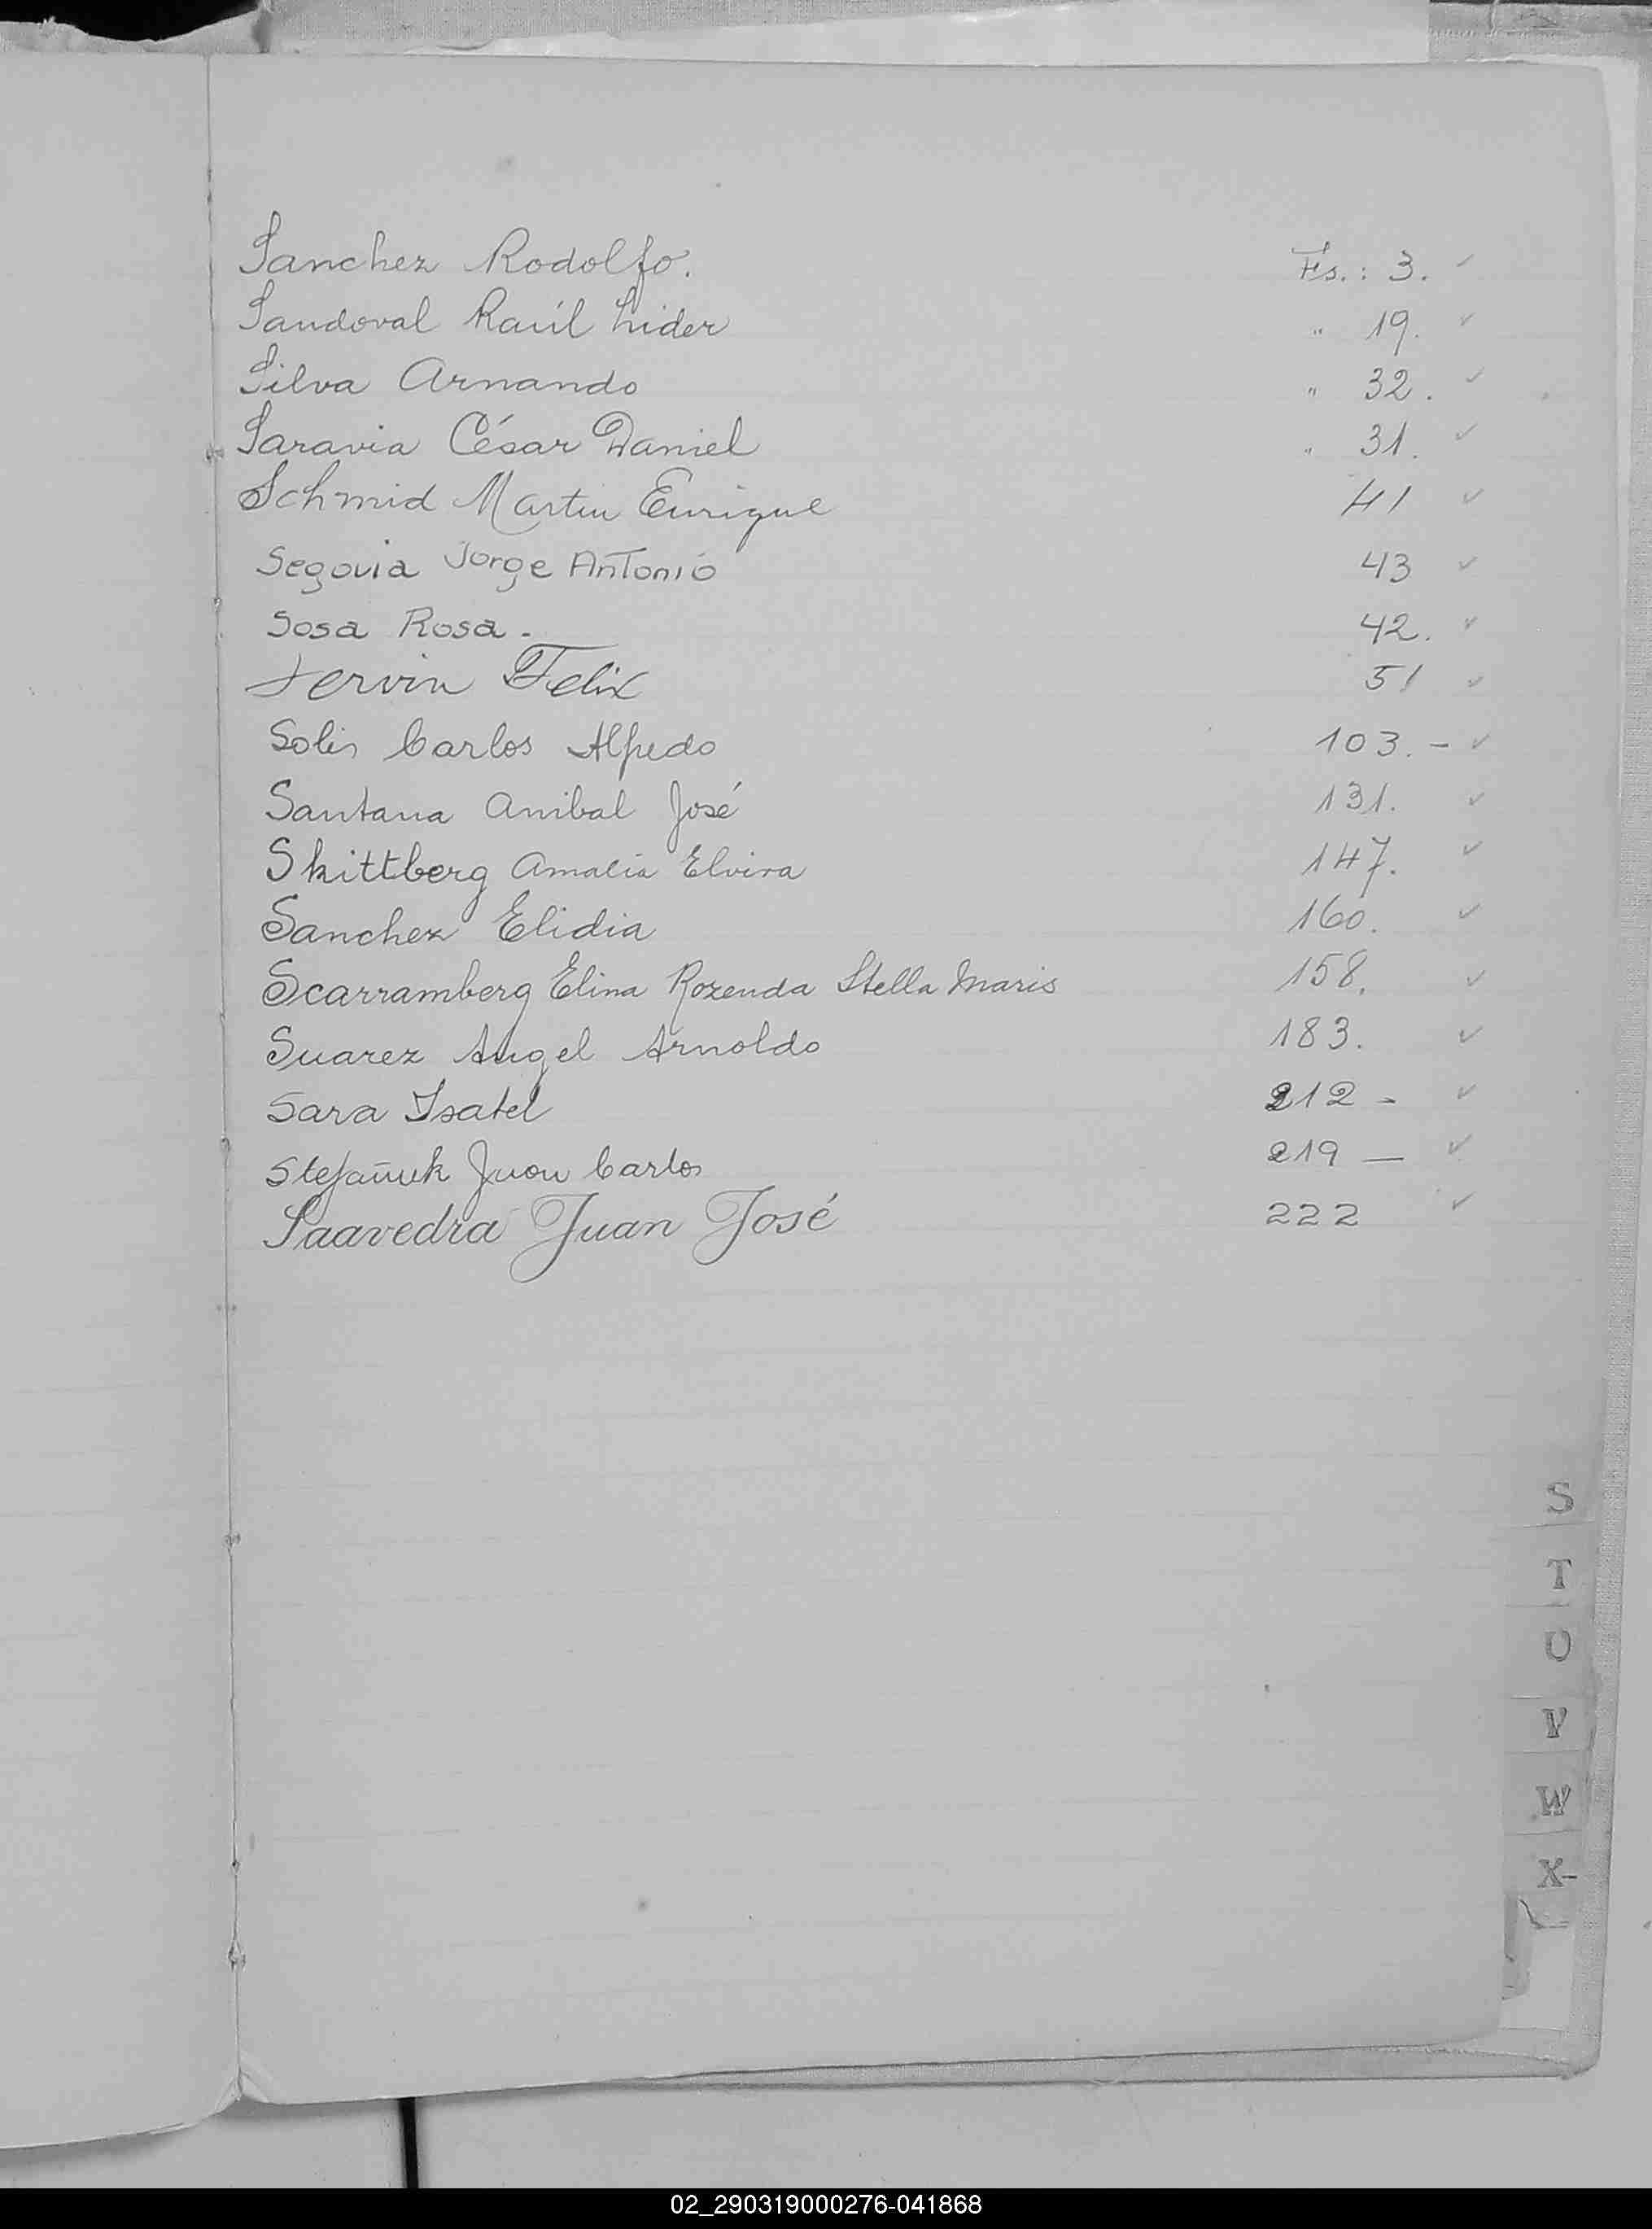 Sanchez Rodolfo. Fs.: 3. ✓
Sandoval Raúl Lider " 19. ✓
Silva Armando " 32. ✓
Saravia César Daniel " 31. ✓
Schmid Martin Enrique 41 ✓
Segovia Jorge Antonio 43 ✓
Sosa Rosa. 42. ✓
Servin Felix 51 ✓
Solis Carlos Alfredo 103.- ✓
Santana Anibal José 131. ✓
Skittberg Amalia Elvira 147. ✓
Sanchez Elidia 160. ✓
Scarramberg Elina Rozenda Stella Maris 158. ✓
Suarez Angel Arnoldo 183. ✓
Sara Isabel 212 - ✓
Juan Carlos 219 — ✓
Saavedra Juan José 222 ✓
S
T
U
V
W
X-
02_290319000276-041868